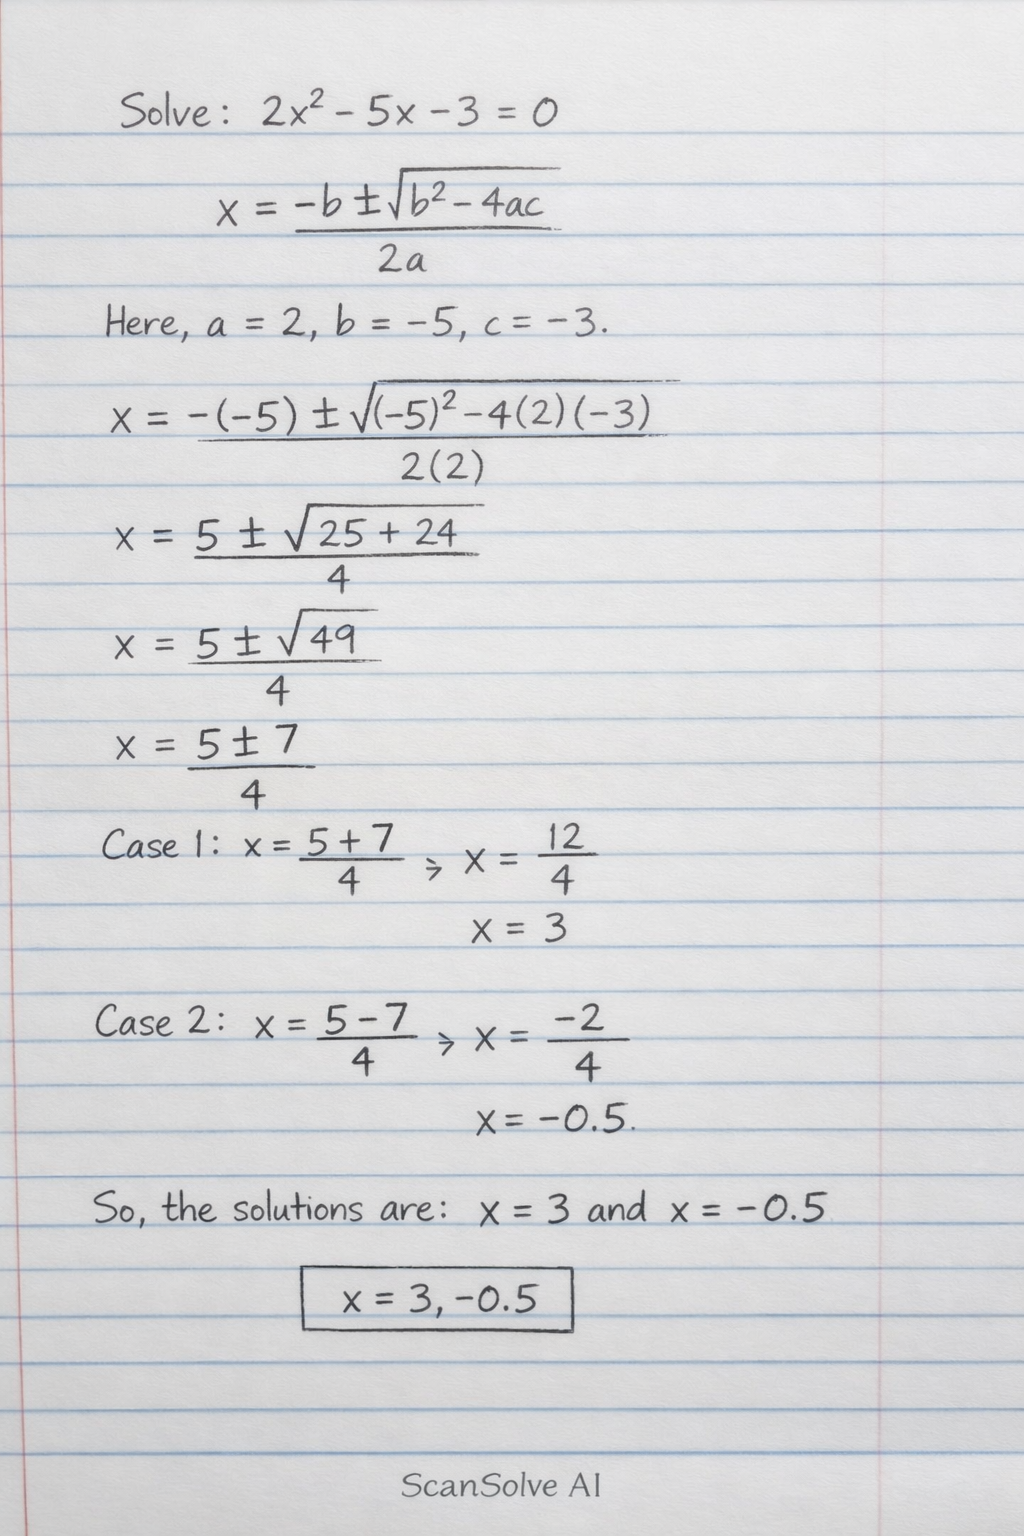 Solve: 2x² - 5x - 3 = 0
x = -b ± √b² - 4ac
2a
Here, a = 2, b = -5, c = -3.
x = -(-5) ± √(-5)² - 4(2)(-3)
2(2)
x = 5 ± √25 + 24
4
x = 5 ± √49
4
x = 5 ± 7
4
Case 1: x = 5 + 7 / 4 → x = 12 / 4
x = 3
Case 2: x = 5 - 7 / 4 → x = -2 / 4
x = -0.5.
So, the solutions are: x = 3 and x = -0.5
x = 3, -0.5
ScanSolve AI